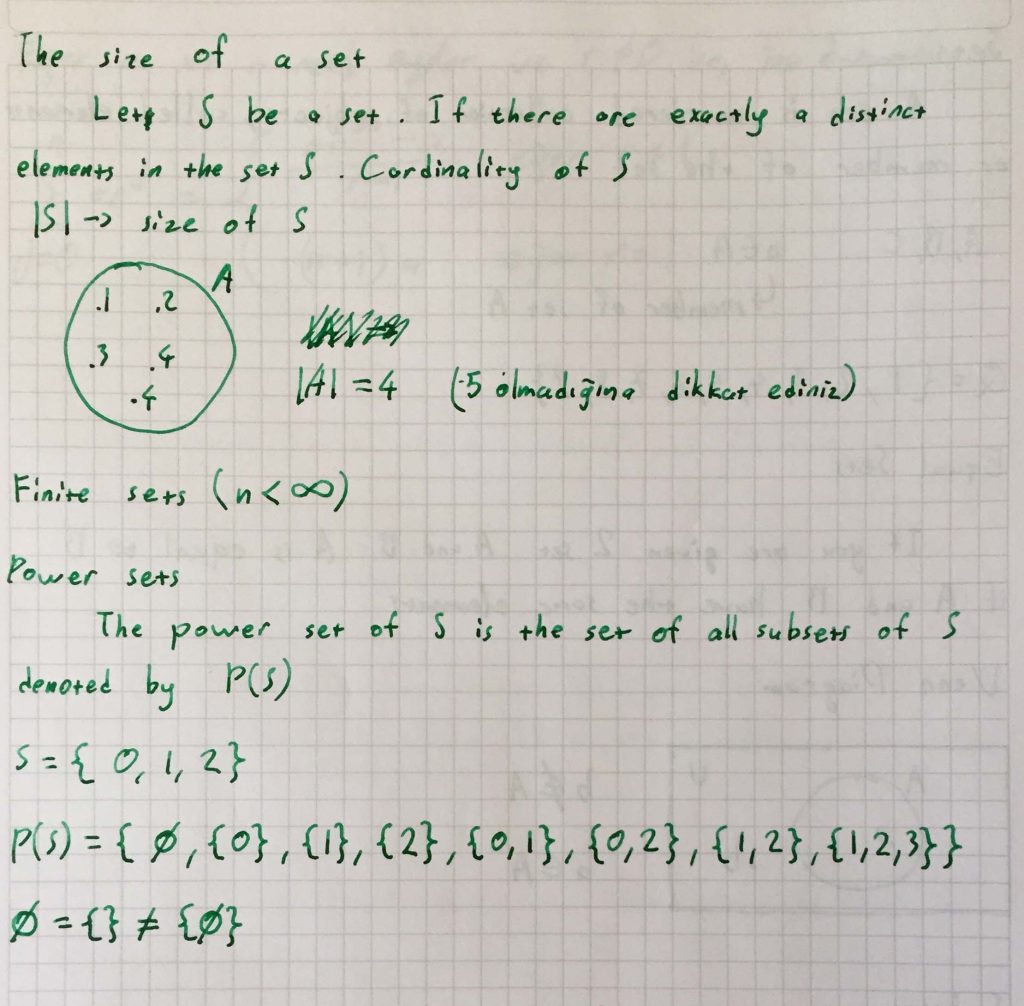 The size of a set
Let S be a set. If there are exactly a distinct
elements in the set S. Cardinality of S
|S| → size of S
A
.1 .2
.3 .4
.4
|A| = 4 (5 olmadığına dikkat ediniz)
Finite sets (n < ∞)
Power sets
The power set of S is the set of all subsets of S
denoted by P(S)
S = { 0, 1, 2}
P(S) = { ∅, {0}, {1}, {2}, {0,1}, {0,2}, {1,2}, {1,2,3}}
∅ = {} ≠ {∅}